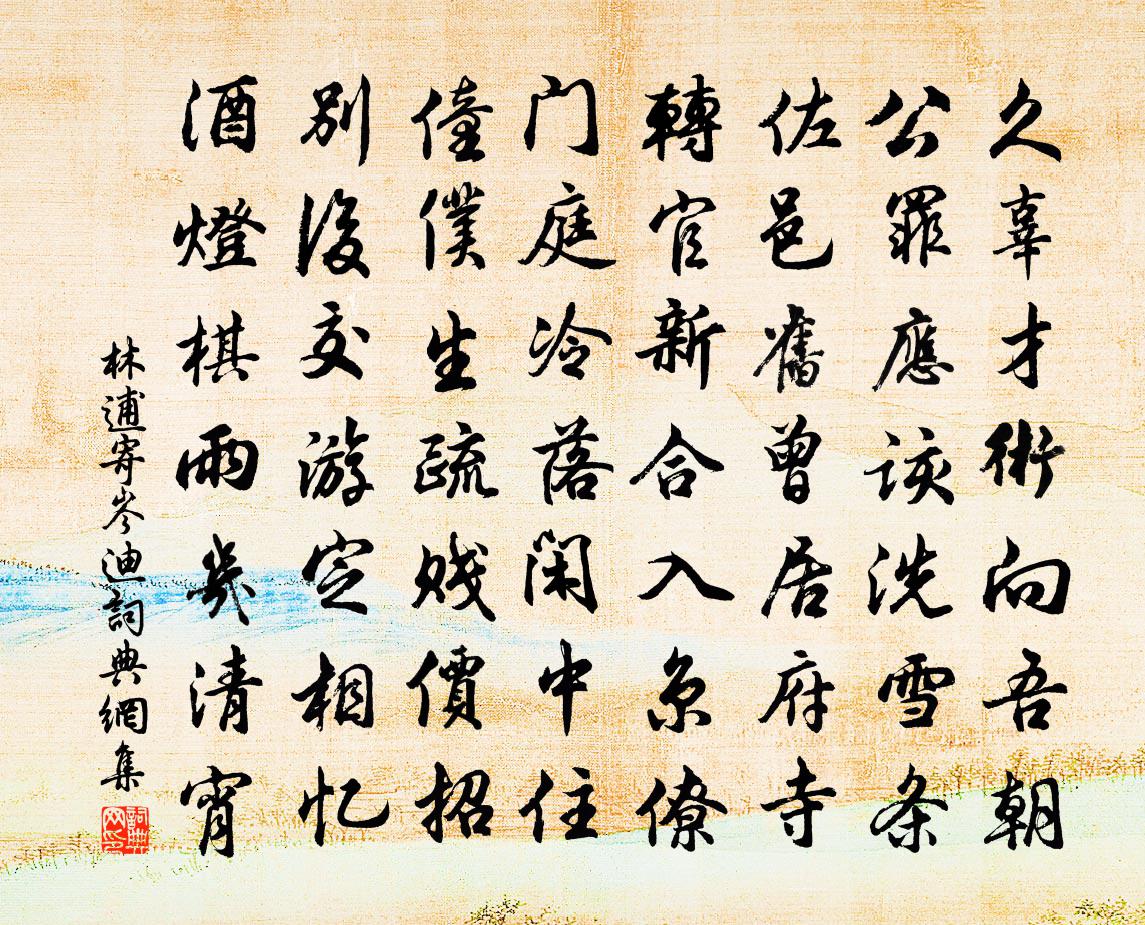 久辜才術向吾朝
公罪應該洗雪条
佐邑舊曾居府寺
轉官新合入京僚
门庭冷落闲中住
僮僕生疏贱價招
别後交游定相忆
酒燈棋雨幾清宵
林逋寄岑迪詞典網集
詞典网印